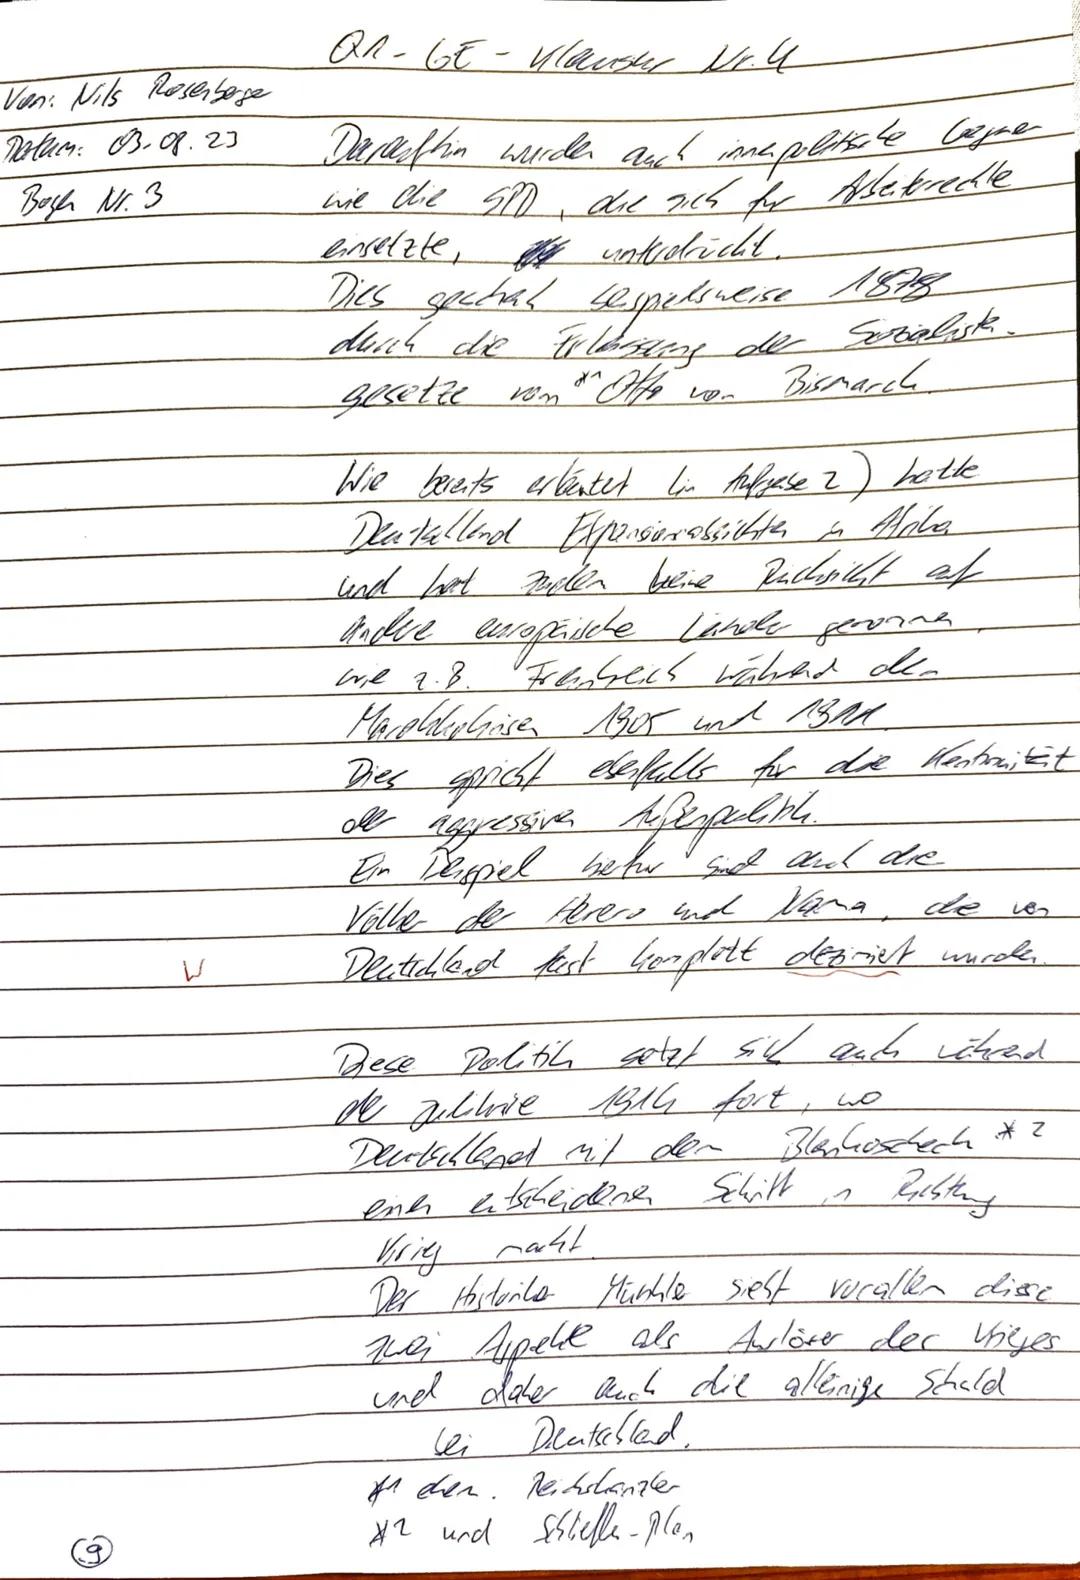 Q1-GE-Klausur Nr. 4
Von: Nils Rosenberge
Datum: 03.08.23
Bogen Nr. 3
Daraufhin wurden auch innenpolitische Gegner
wie die SPD, die sich für Arbeiterrechte
einsetzte, unterdrückt.
Dies geschah beispielsweise 1878
durch die Erlassung der Sozialisten-
gesetze vom *1 Otto von Bismarck.
Wie bereits erläutert (in Aufgabe 2) hatte
Deutschland Expansionsabsichten in Afrika
und hat zudem keine Rücksicht auf
andere europäische Länder genommen,
wie z.B. Frankreich während den
Marokkokrisen 1905 und 1911.
Dies spricht ebenfalls für die Kontinuität
der aggressiven Außenpolitik.
Ein Beispiel hierfür sind auch die
Völker der Herero und Nama, die von
Deutschland fast komplett dezimiert wurden.
W
Diese Politik setzt sich auch während
der Julikrise 1914 fort, wo
Deutschland mit dem Blankoscheck *2
einen entscheidenen Schritt in Richtung
Krieg macht.
Der Historiker sieht vorallem diese
zwei Aspekte als Auslöser des Krieges
und daher auch die alleinige Schuld
bei Deutschland.
*1 dem. Reichskanzler
*2 und Schlieffen-Plan
9